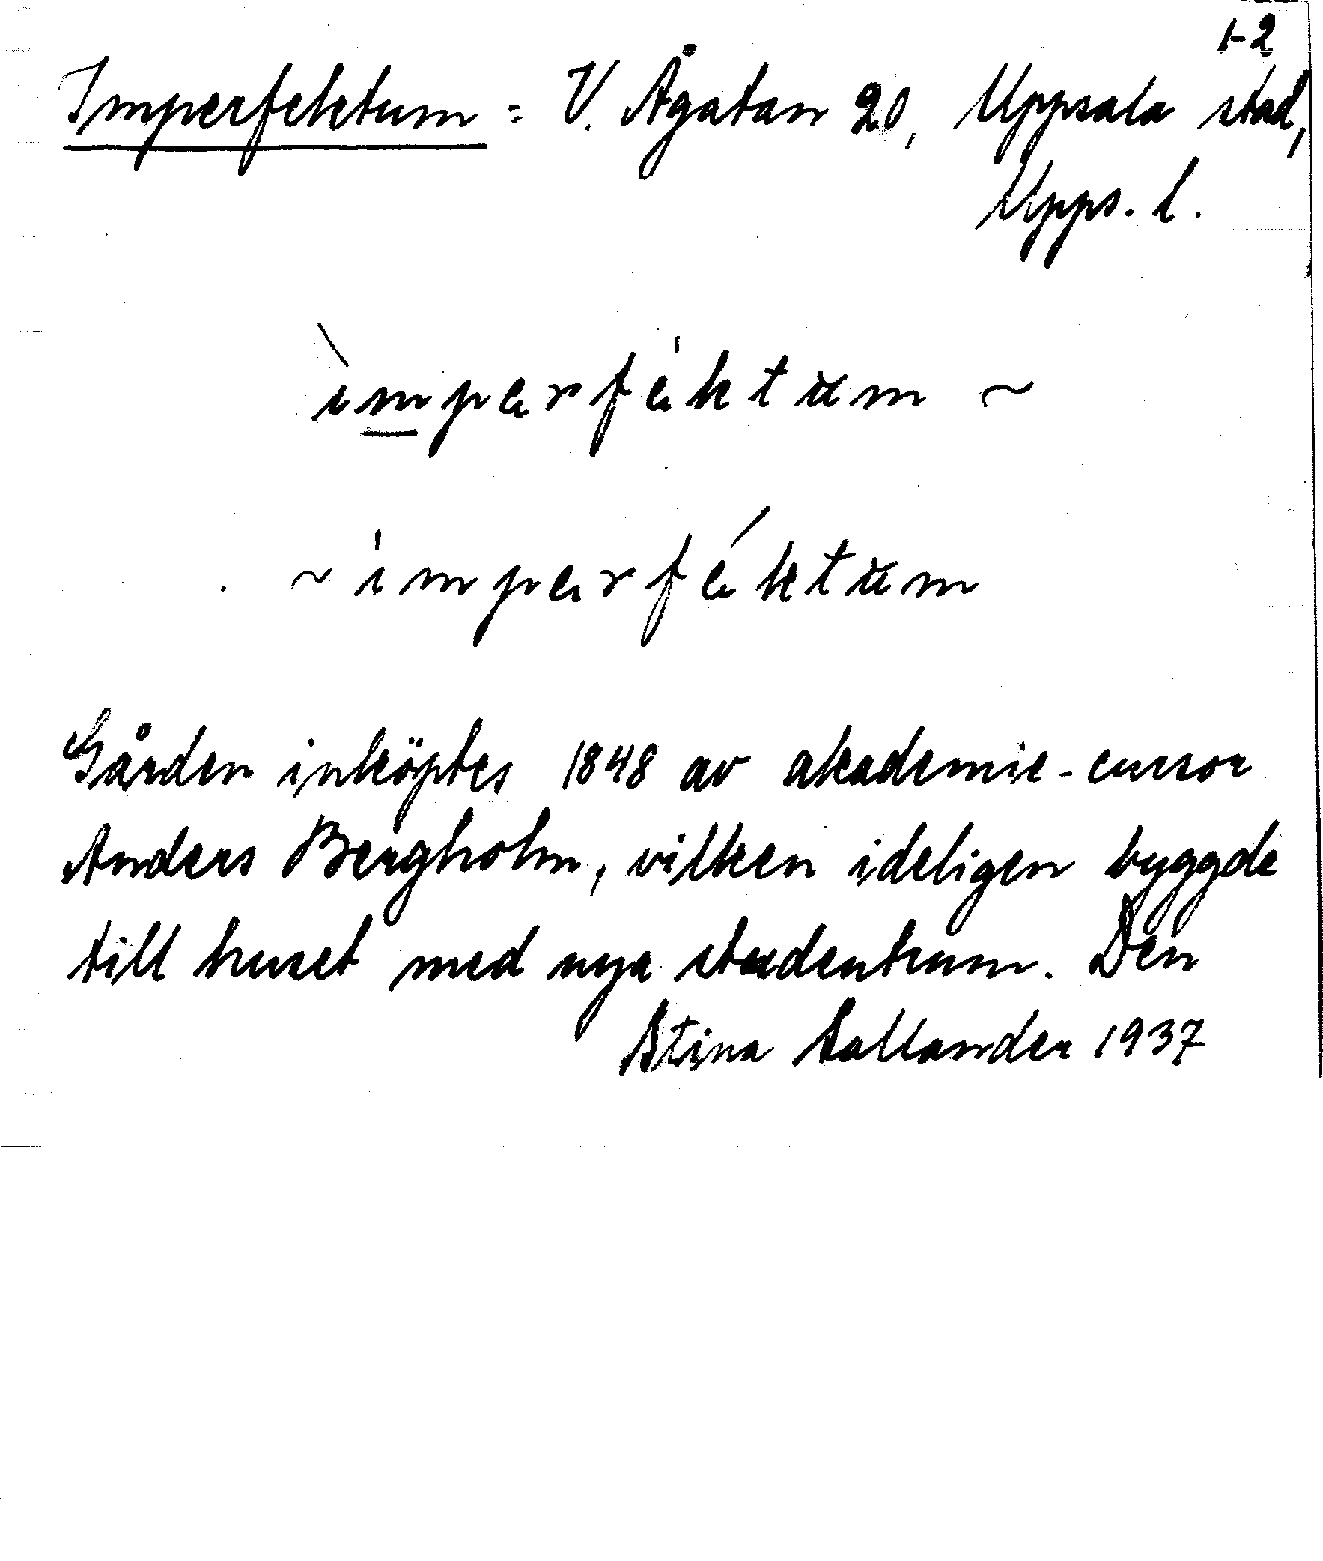 1-2
Imperfektum = V. Ågatan 20, Uppsala stad,
Upps. l.
ìmperféktum ~
~ imperféktum
Gården inköptes 1848 av akademie-cursor
Anders Bergholm, vilken ideligen byggde
till huset med nya studentrum. Den
Stina Sallander 1937